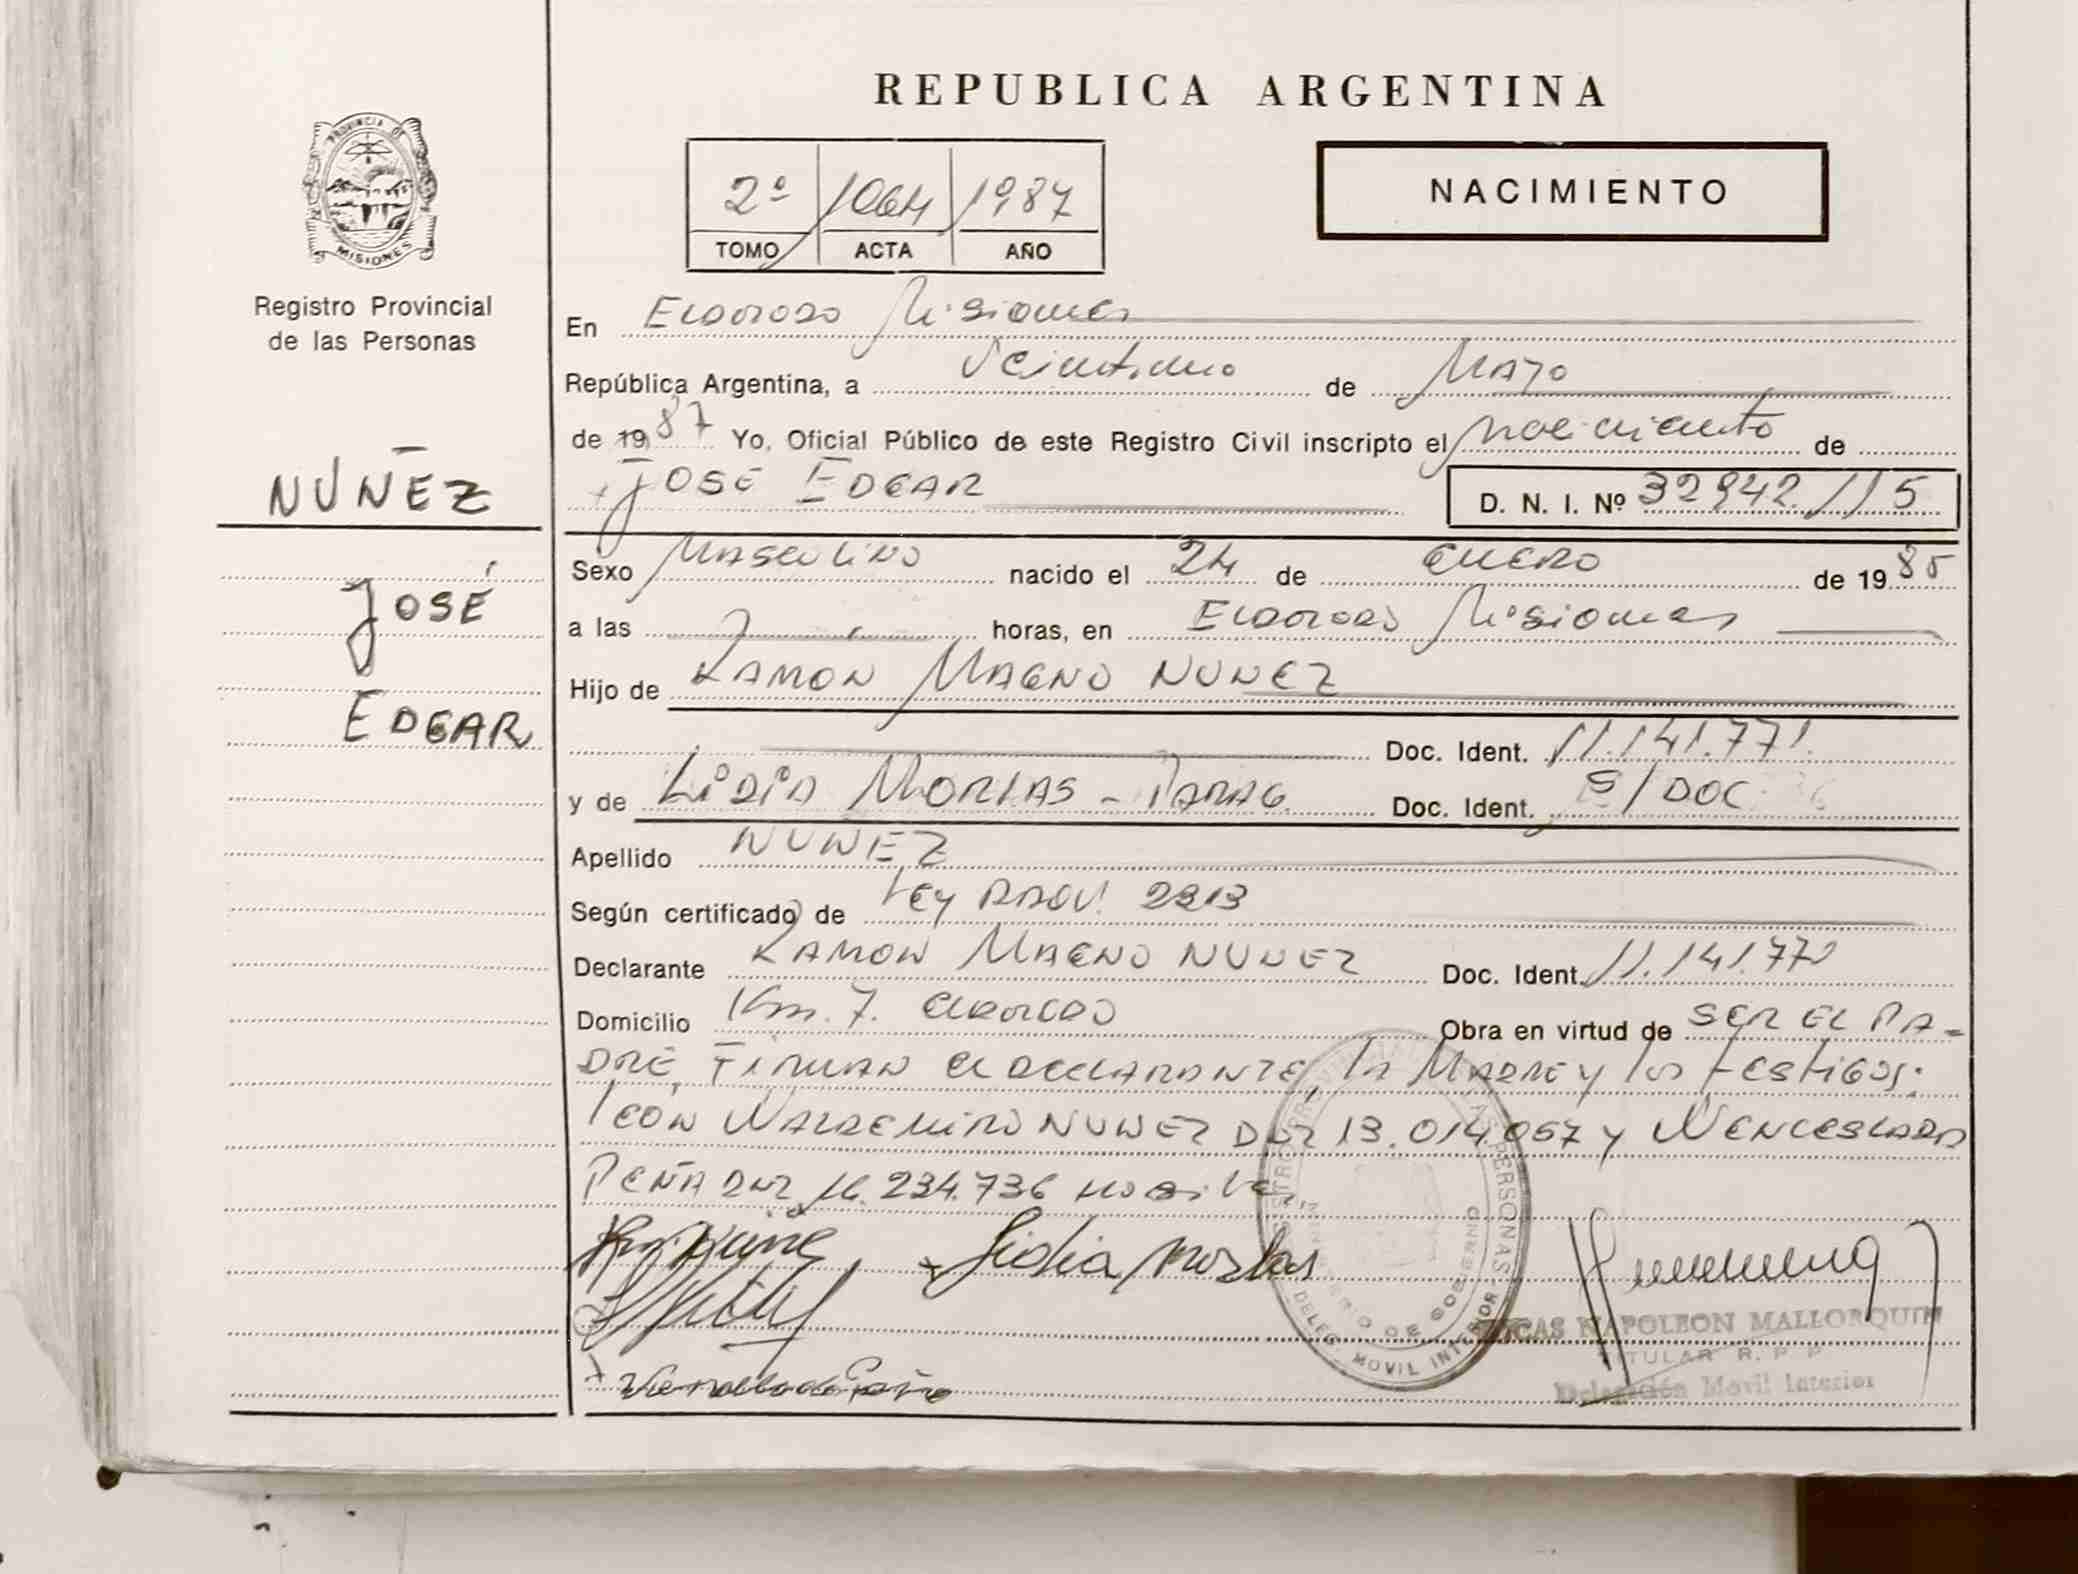 REPUBLICA ARGENTINA
PROVINCIA DE
MISIONES
2º 1064 1987
TOMO ACTA AÑO
NACIMIENTO
Registro Provincial
de las Personas
NUÑEZ
JOSÉ
EDGAR
En Eldorado Misiones
República Argentina, a Veintiuno de MAYO
de 1987 Yo, Oficial Público de este Registro Civil inscripto el nacimiento de
JOSE EDGAR D. N. I. Nº 32942.115
Sexo MASCULINO nacido el 24 de ENERO de 1985
a las horas, en Eldorado Misiones
Hijo de RAMON MAGNO NUNEZ
Doc. Ident. 11.141.771.
y de LIDIA MORLAS - PARAG. Doc. Ident. S/DOC
Apellido NUÑEZ
Según certificado de Ley 2213
Declarante RAMON MAGNO NUNEZ Doc. Ident. 11.141.770
Domicilio Km. 7. Eldorado Obra en virtud de SER EL PA-
DRE, FIRMAN EL DECLARANTE, LA MADRE Y LOS TESTIGOS:
LEON WALDEMIRO NUNEZ DNI 13.014.057 Y WENCESLADA
PEÑA DNI 16.234.736
Lidia Morlas
LUCAS NAPOLEON MALLORQUIN
TITULAR R. P. P.
Delegación Movil Interior
REGISTRO PROVINCIAL DE LAS PERSONAS
MINISTERIO DE GOBIERNO
DELEG. MOVIL INTERIOR